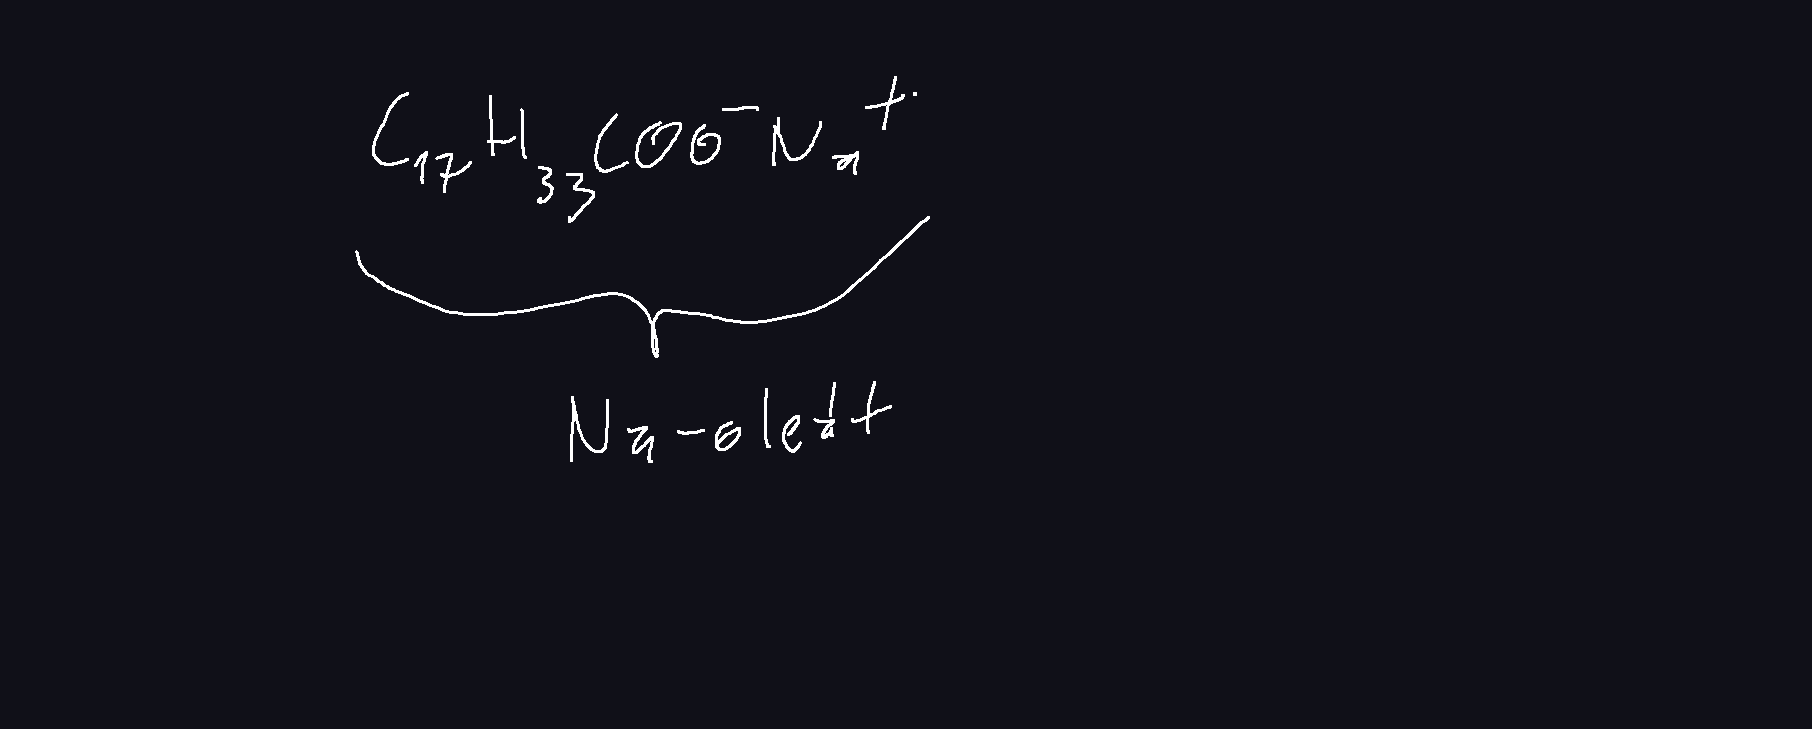 C₁₇H₃₃COO⁻Na⁺
Na-oleát